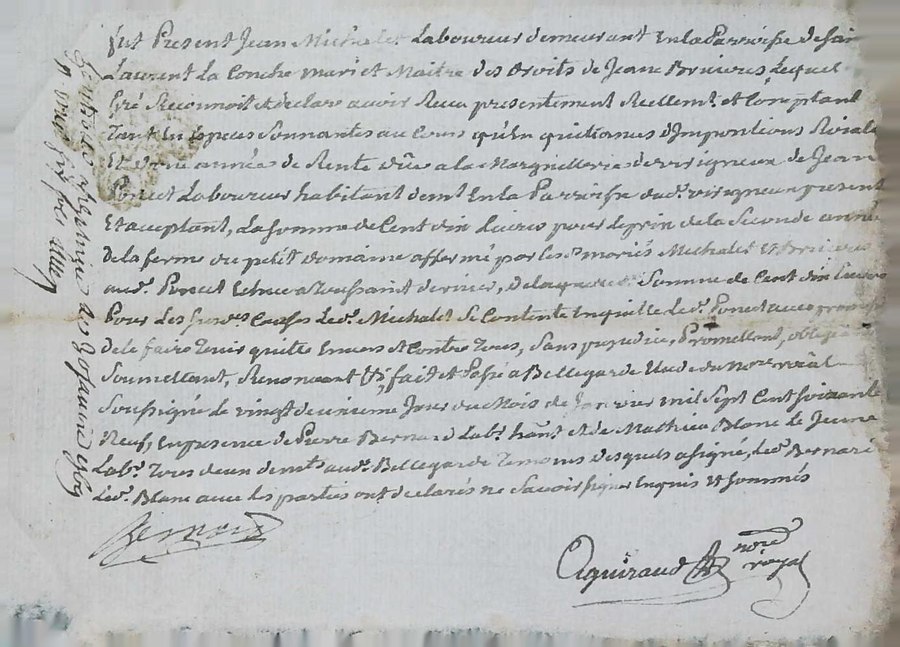 fut Present Jean Michalet Laboureur demeurant En la Parroisse de Sain
Laurent La Conche mari et Maitre des droits de Jeane Brieres, Lequel
gré Reconnoit et declare avoir Receu presentement Reellemt et Comptant
Tant En Especes Sonnantes au Cours qu'En quittances d'Impositions Roiale
Et d'une année de Rente düe a la Marguillerie de virigneux de Jean
Poncet Laboureur habitant demt En la Parroisse dud. virigneux present
Et acceptant, La somme de Cent dix Livres pour le prix de la Seconde année
de la ferme du petit domaine affermé par les mariés Michalet Et Brieres
aud. Poncet Echue a Toussaint dernier, de laquelle Somme de Cent dix Livres
Pour les causes Led. Michalet Se Contente En quitte led. Poncet avec promesse
de le faire Tenir quitte Envers Et Contre Tous, Sans prejudice, Promettant, obligeant
Soumettant, Renonceant fait et Passé a Bellegarde Etude du Nore roial
Soussigné le vingt deuxieme Jour du Mois de Janvier mil Sept Cent Soixante
Neuf, En presence de Pierre Bernard Labr hant et de Mathieu Blanc le Jeune
Labr Tous deux demts aud. Bellegarde Temoins desquels a signé, led. Bernard
Led. Blanc avec les parties ont declarés ne Savoir signer Enquis et Sommés
Bernard
Aguiraud nore
royal